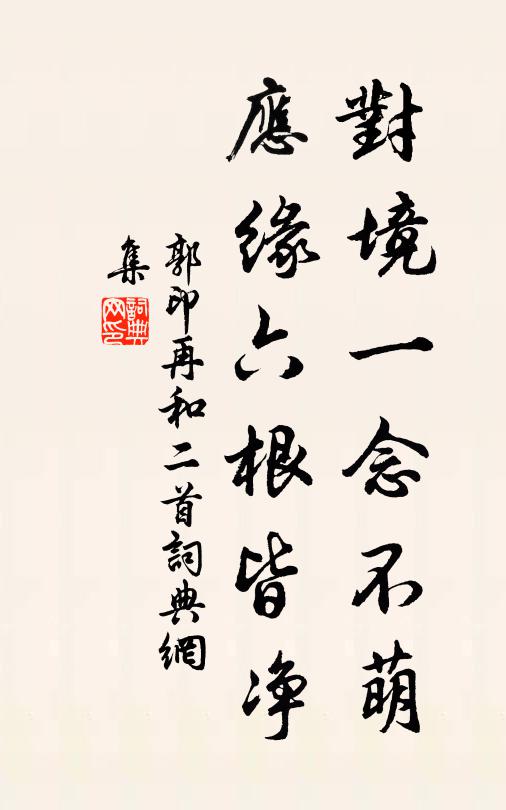 對境一念不萌
應緣六根皆净
郭印再和二首詞典網
集
詞典
网印